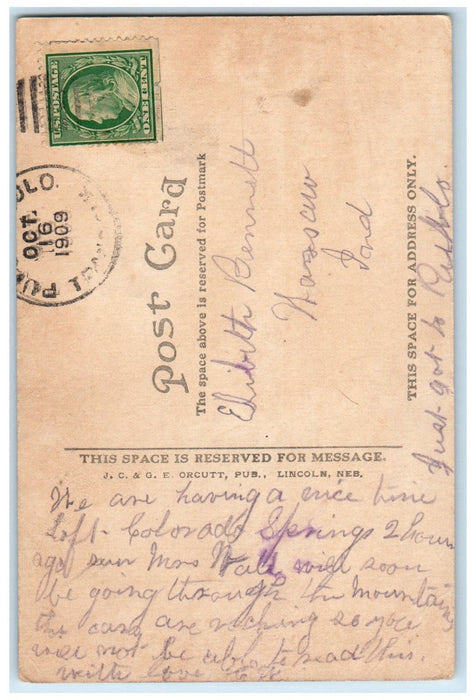 U.S. POSTAGE
ONE CENT
PUEBLO, COLO.
OCT.
16
1909
TRANS
Post Card
The space above is reserved for Postmark
Elizibeth Bennett
Warsaw
Ind
THIS SPACE FOR ADDRESS ONLY.
Just got to Pueblo.
THIS SPACE IS RESERVED FOR MESSAGE.
J. C. & G. E. ORCUTT, PUB., LINCOLN, NEB.
We are having a nice time
Left Colorado Springs 2 hours
ago Mrs will soon
be going through the Mountains
the cars are rocking so you
will not be able to read this.
with love